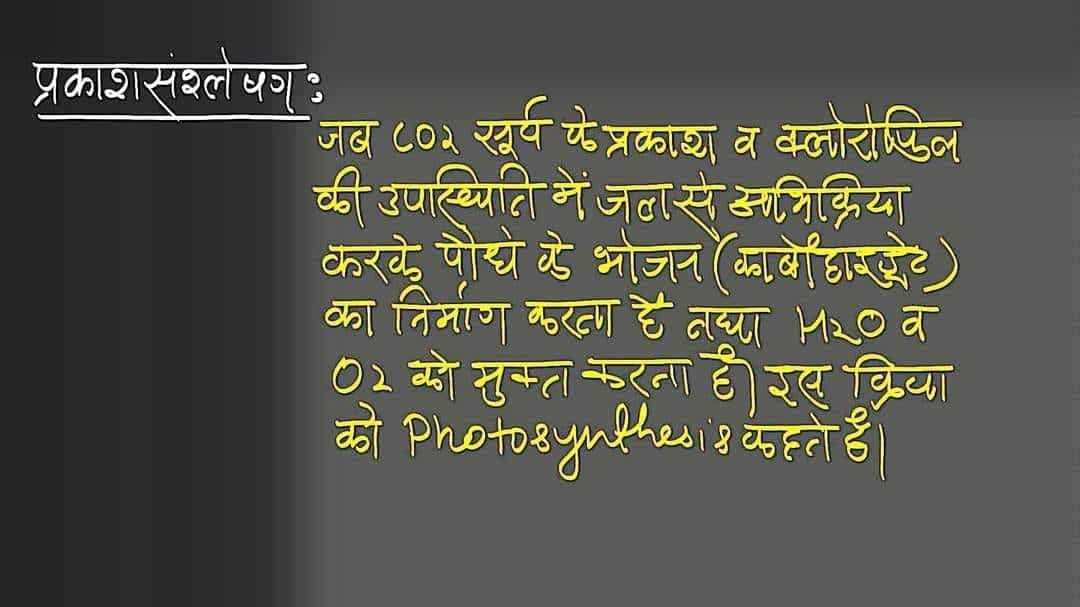 प्रकाशसंश्लेषण :
जब CO2 सूर्य के प्रकाश व क्लोरोफिल
की उपस्थिति में जल से अभिक्रिया
करके पौधे के भोजन (कार्बोहाइड्रेट)
का निर्माण करता है तथा H2O व
O2 को मुक्त करता है। इस क्रिया
को Photosynthesis कहते हैं।